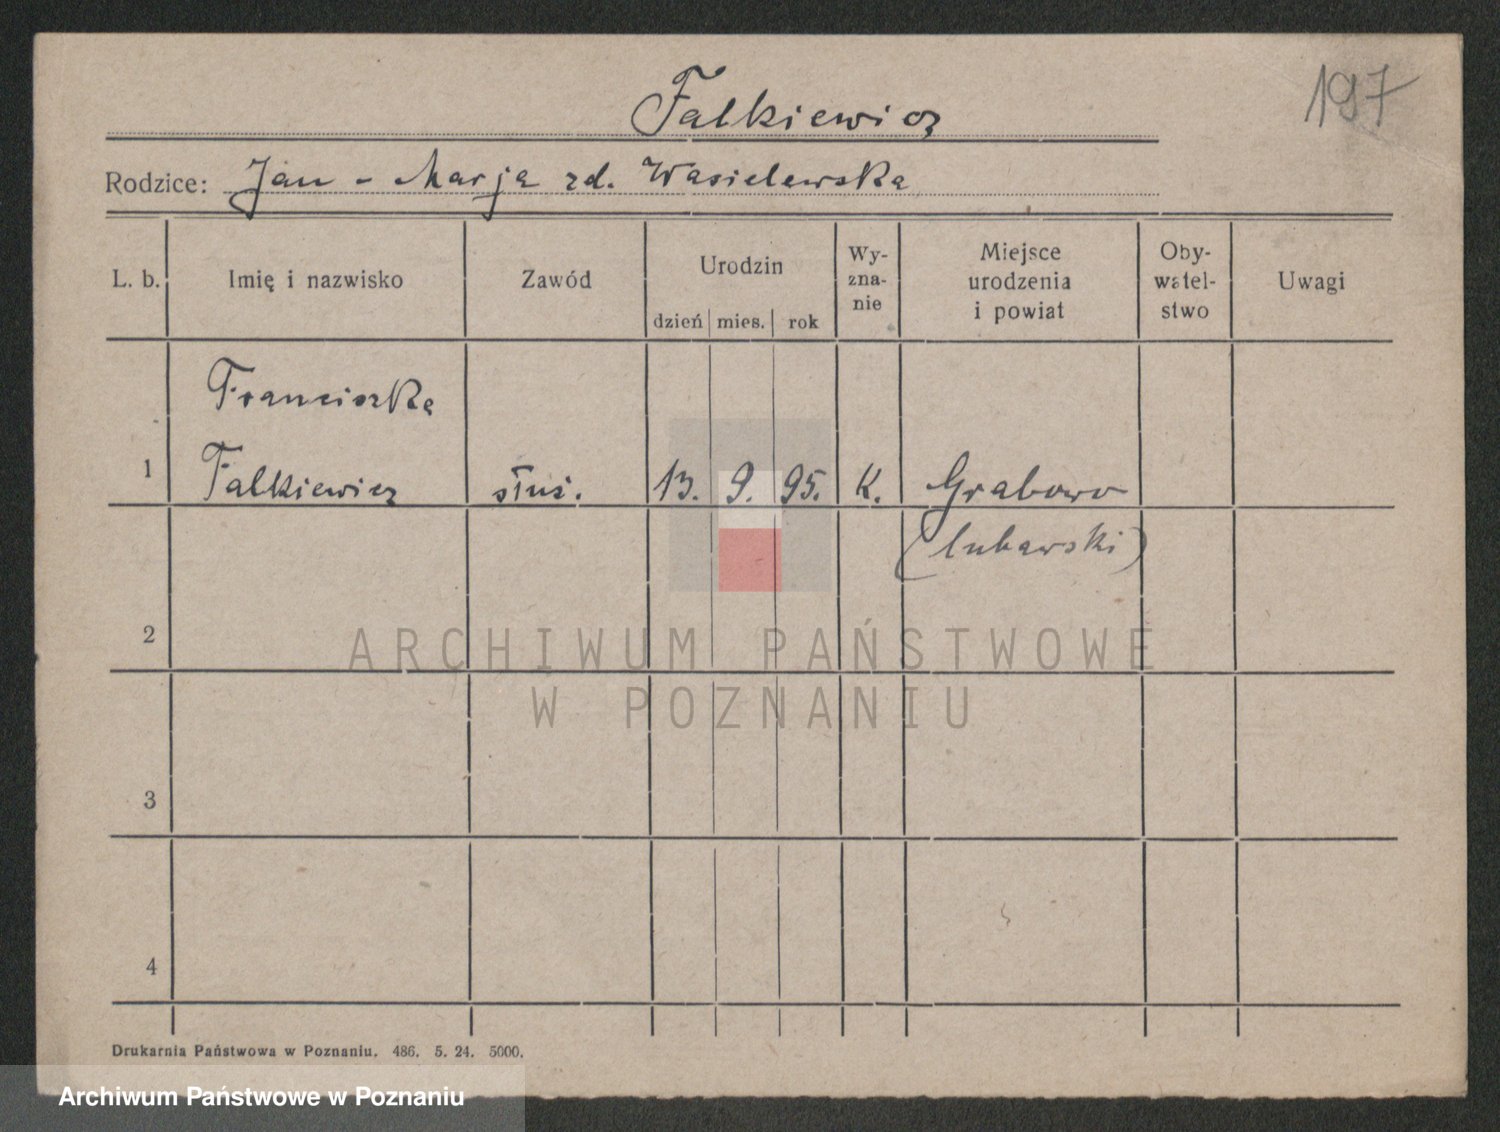 197
Falkiewicz
Rodzice: Jan - Marja zd. Wasielewska
L. b. Imię i nazwisko Zawód Urodzin dzień mies. rok Wy-zna-nie Miejsce urodzenia i powiat Oby-watel-stwo Uwagi
Franciszka
1 Falkiewicz służ. 13. 9. 95. K. Grabowo
(lubawski)
2
ARCHIWUM PAŃSTWOWE
W POZNANIU
3
4
Drukarnia Państwowa w Poznaniu. 486. 5. 24. 5000.
Archiwum Państwowe w Poznaniu